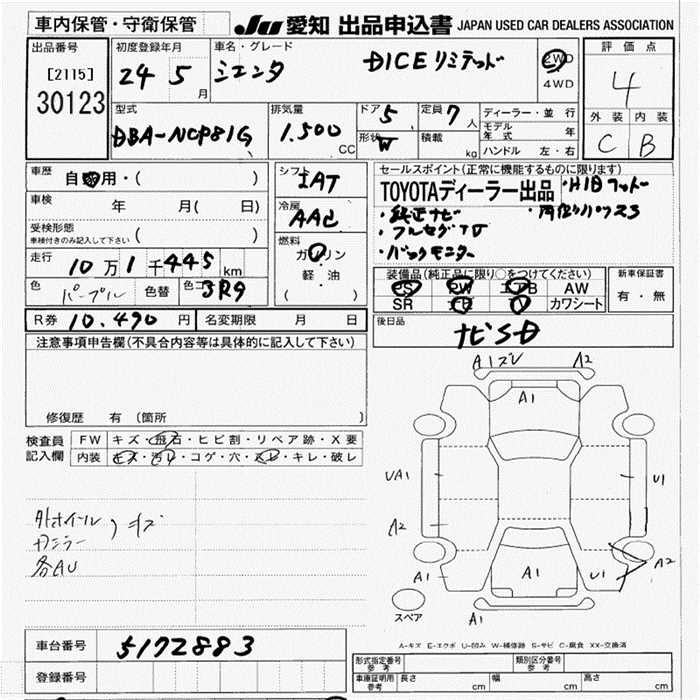 車内保管・守衛保管
JU 愛知 出品申込書 JAPAN USED CAR DEALERS ASSOCIATION
出品番号
[2115]
30123
初度登録年月
24 5月
車名・グレード
シエンタ DICEリミテッド
2WD
4WD
評価点
4
外装 内装
C B
型式
DBA-NCP81G
排気量
1.500 CC
ドア 5
形状 W
定員 7人
積載 kg
ディーラー・並行
モデル年式 年
ハンドル 左・右
車歴
自家用・( )
車検 年 月( 日)
受検形態
車検付きのみ記入して下さい ( )
走行 10万1千445km
色 パープル 色替 色コ 3R9
シフト
IAT
冷房
AAC
燃料
ガソリン
軽・油
( )
セールスポイント(正常に機能するものに限ります)
TOYOTAディーラー出品
・純正ナビ
・フルセグTV
・バックモニター
装備品(純正品に限り○をつけてください)
PS PW エアB AW
SR ナビ カワシート
新車保証書
有・無
R券 10.490円 名変期限 月 日
後日品
ナビSD
注意事項申告欄(不具合内容等は具体的に記入して下さい)
修復歴 有 (箇所 )
検査員記入欄
FW キズ・飛石・ヒビ割・リペア跡・X要
内装 キズ・汚レ・コゲ・穴・スレ・キレ・破レ
外ホイール
カミラー
キズ
各AU
A1ズレ A2
A1
UA1
U1
A2
A1
A1
U1
A2
A1
スペア
A-キズ E-エクボ U-凹み W-補修跡 S-サビ C-腐食 XX-交換済
車台番号 5172883
登録番号
形式指定番号 参考
類別区分番号 参考
車庫証明用 参考
長さ cm 幅 cm 高さ cm